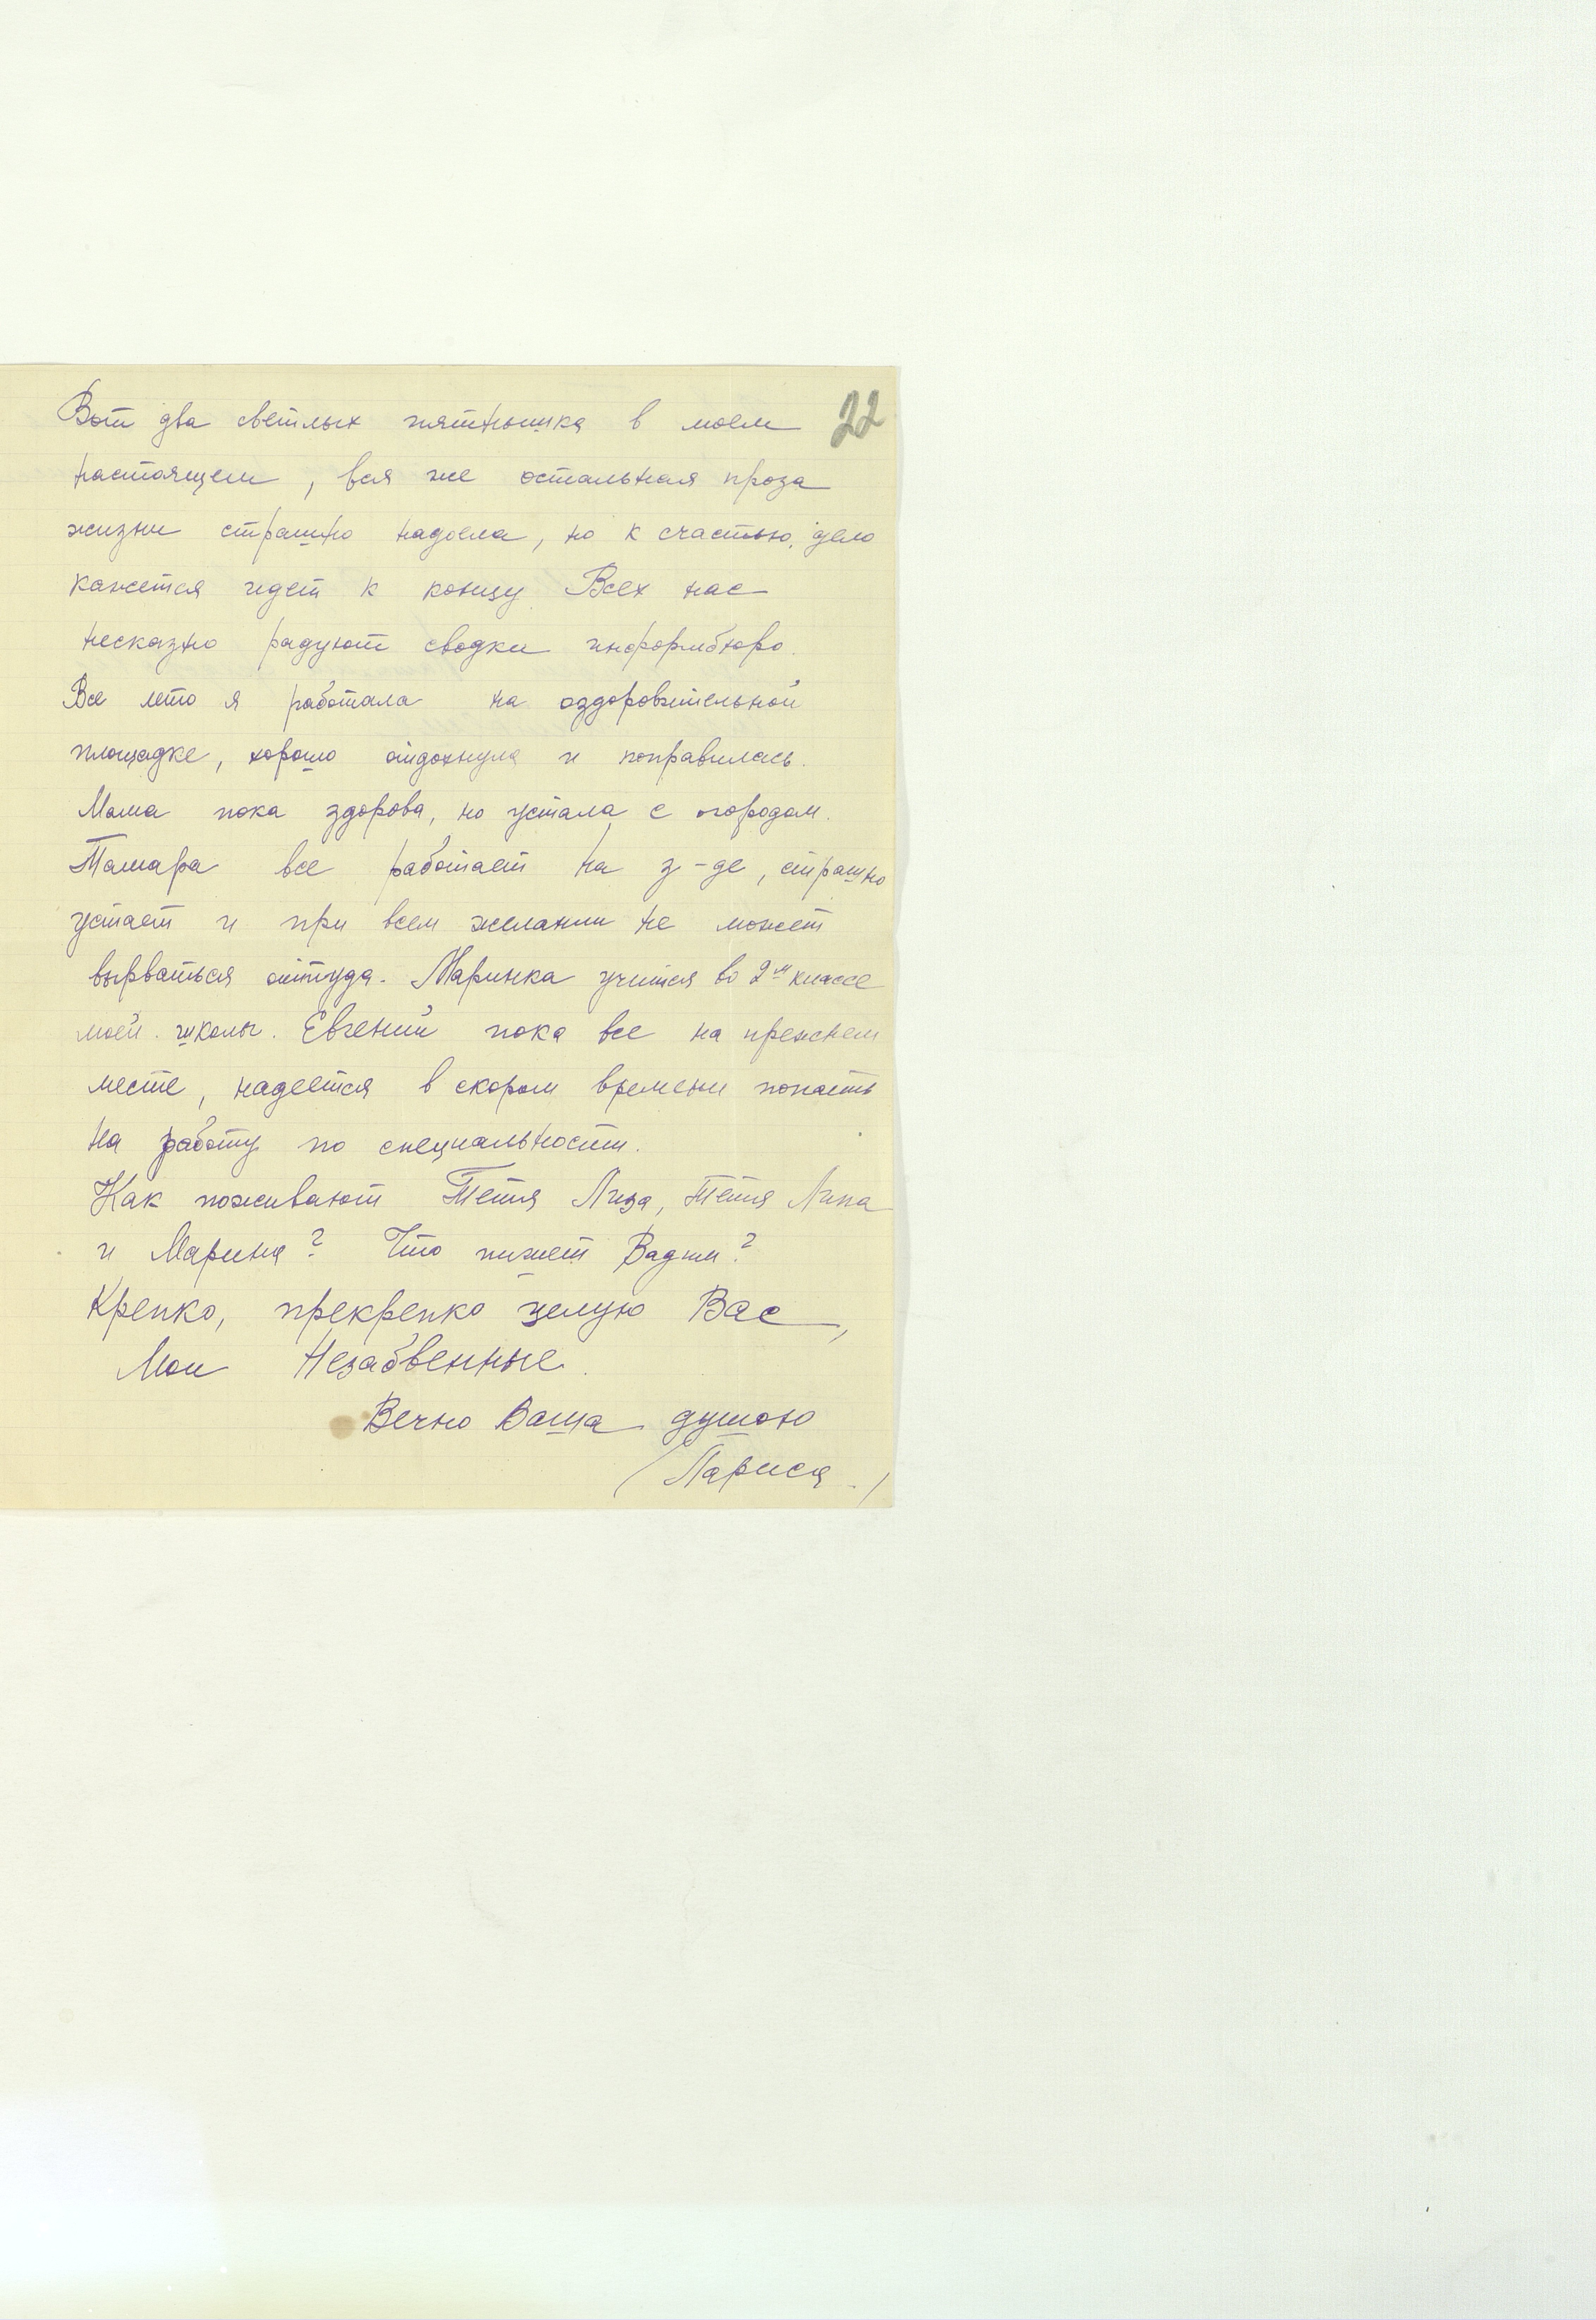 22
Вот два светлых пятнышка в моем
настоящем, вся же остальная проза
жизни страшно надоела, но к счастью, дело
кажется идет к концу. Всех нас
несказно радуют сводки информбюро.
Все лето я работала на оздоровительной
площадке, хорошо отдохнула и поправилась.
Мама пока здорова, но устала с огородом.
Тамара все работает на з-де, страшно
устает и при всем желании не может
вырваться оттуда. Маринка учится во 2м классе
моей школы. Евгений пока все на прежнем
месте, надеется в скором времени попасть
на работу по специальности.
Как поживают Тетя Лиза, Тетя Липа
и Марина? Что пишет Вадим?
Крепко, прекрепко целую Вас,
Мои Незабвенные.
Вечно Ваша душою
(Лариса.)